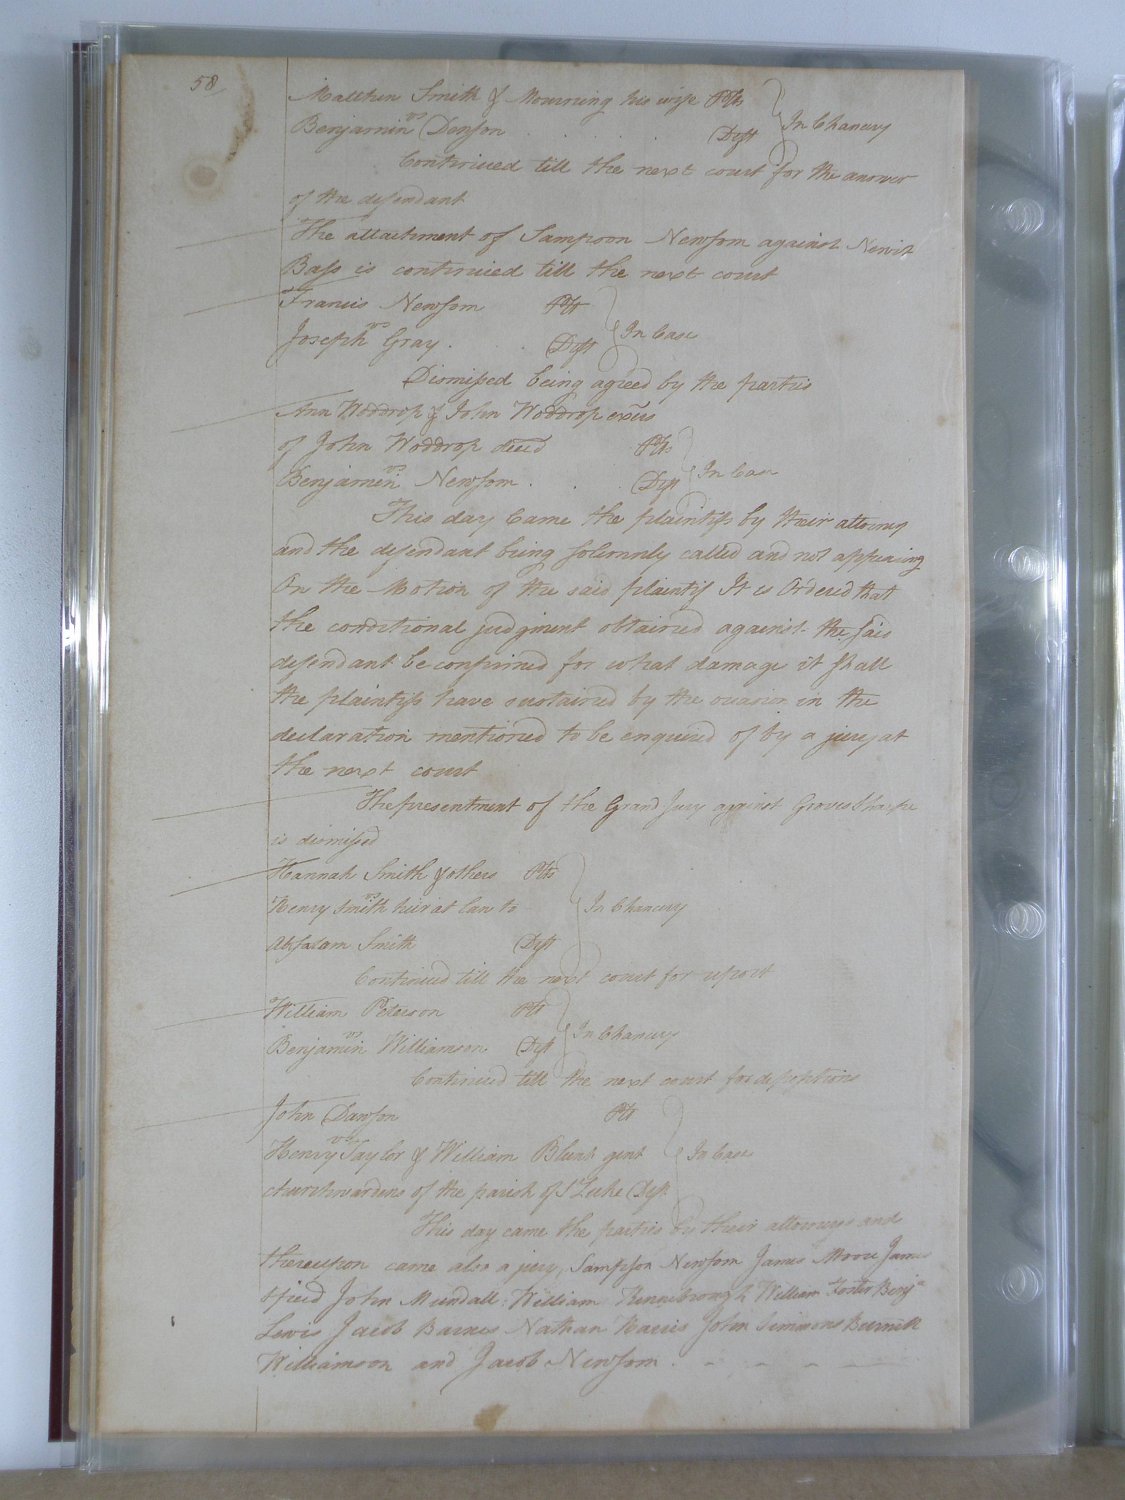 58
Matthew Smith & Mourning his wife Plts
vs } In Chancery
Benjamin Dawson . . . . Deft
Continued till the next court for the answer
of the defendant
The attachment of Sampson Newsom against Newit
Bass is continued till the next court
Francis Newsom Plt
vs } In Case
Joseph Gray . . . Deft
Dismissed being agreed by the parties
Ann Woddrop & John Woddrop exors
of John Woddrop decd Plts
vs } In Case
Benjamin Newsom . . . Deft
This day Came the plaintifs by their attorney
and the defendant being solemnly called and not appearing
On the Motion of the said plaintif It is Ordered that
the conditional judgment obtained against the said
defendant be confirmed for what damage it shall
the plaintifs have sustained by the ocasion in the
declaration mentioned to be enquired of by a jury at
the next court
The presentment of the Grand Jury against Groves Sharpe
is dismissed
Hannah Smith & others Plts
vs } In Chancery
Henry Smith heir at Law to
Absalam Smith Deft
Continued till the next court for report
William Peterson Plt
vs } In Chancery
Benjamin Williamson Deft
Continued till the next court for depositions
John Dawson Plt
vs } In Case
Henry Taylor & William Blunt gent
churchwardens of the parish of St Luke Deft
This day came the parties by their attorneys and
thereupon came also a jury, Sampson Newsom James Moore James
John Mundall William Kinnebrough William Foster Benja
Lewis Jacob Barnes Nathan Harris John Simmons Burwell
Williamson and Jacob Newsom . - - - -